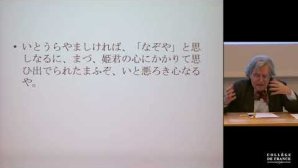 • いとうらやましければ、「なぞや」と思
しなるに、まづ、姫君の心にかかりて思
ひ出でられたまふぞ、いと悪ろき心なる
や。
COLLÈGE
DE FRANCE